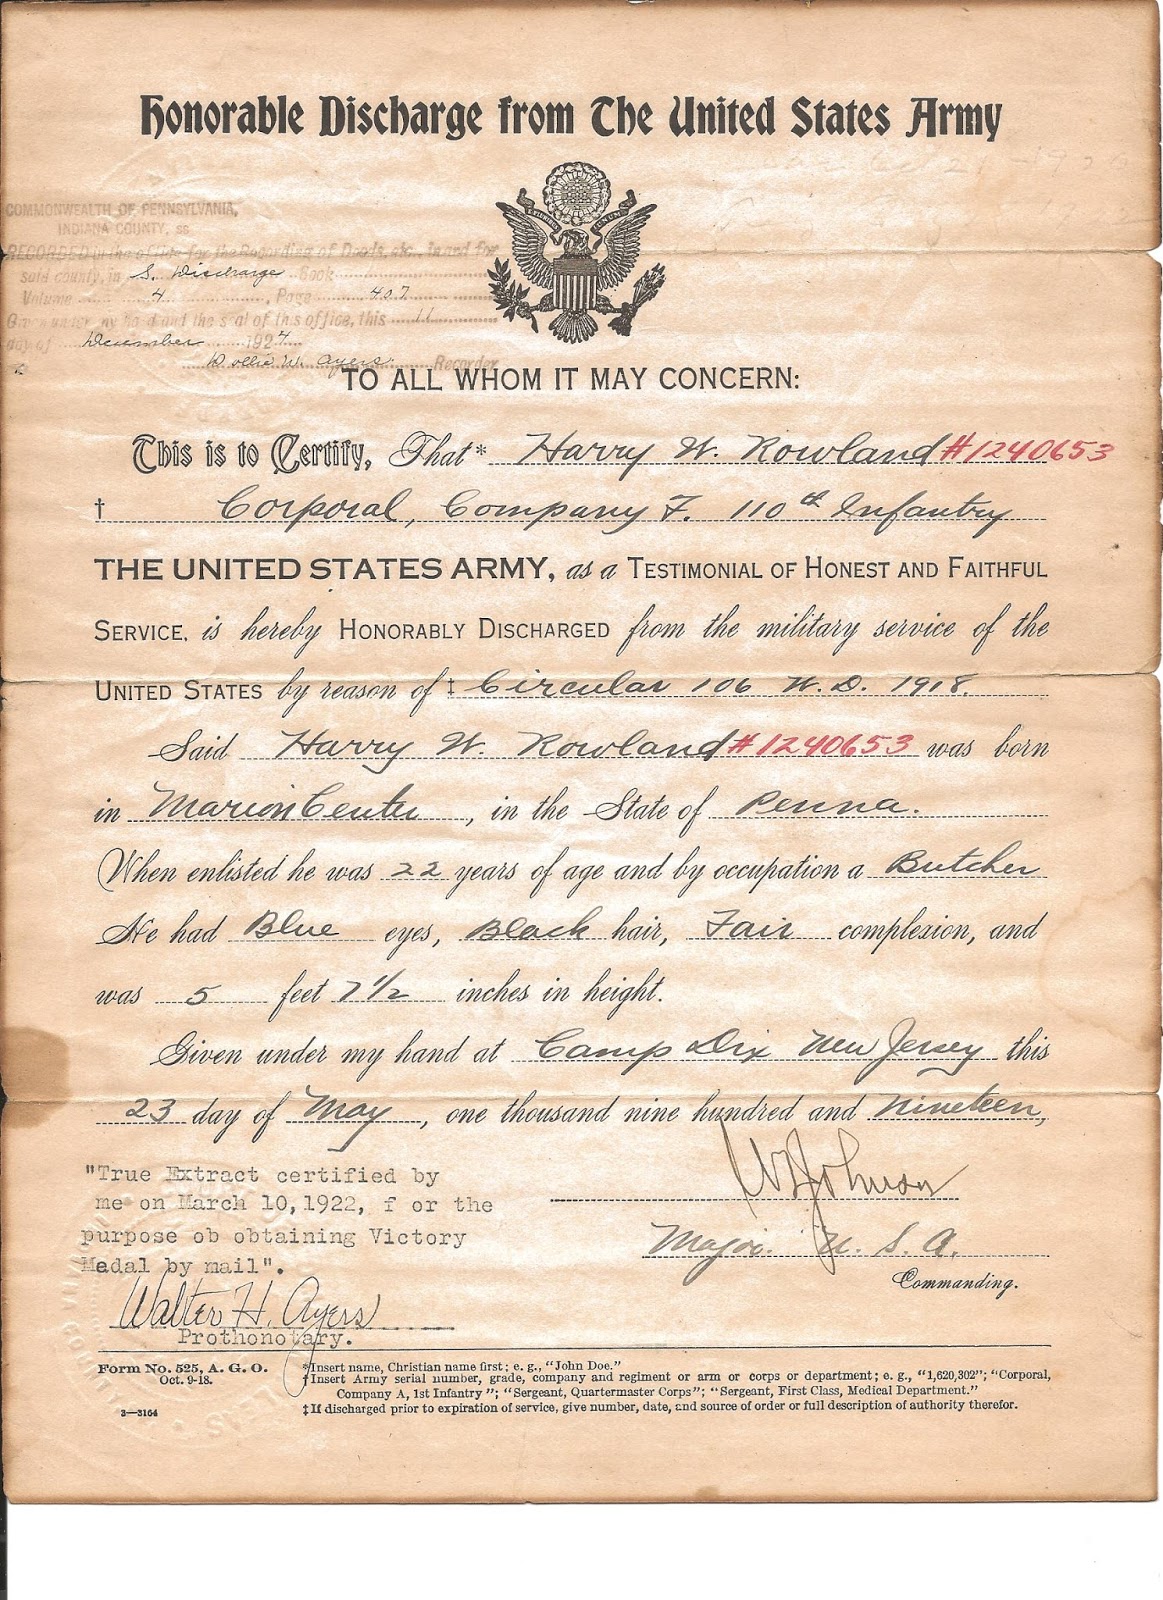 Honorable Discharge from The United States Army
COMMONWEALTH OF PENNSYLVANIA,
INDIANA COUNTY, ss
RECORDED in the office for the Recording of Deeds, etc., in and for
said county, in S. Discharge Book
Volume 4, Page 407
Given under my hand and the seal of this office, this 11
day of December 1924
W. Ayers Recorder
TO ALL WHOM IT MAY CONCERN:
This is to Certify, That* Harry W. Rowland #1240653
† Corporal, Company F. 110th Infantry
THE UNITED STATES ARMY, as a TESTIMONIAL OF HONEST AND FAITHFUL
SERVICE, is hereby HONORABLY DISCHARGED from the military service of the
UNITED STATES by reason of ‡ Circular 106 W.D. 1918.
Said Harry W. Rowland #1240653 was born
in Marion Center, in the State of Penna.
When enlisted he was 22 years of age and by occupation a Butcher
He had Blue eyes, Black hair, Fair complexion, and
was 5 feet 7 1/2 inches in height.
Given under my hand at Camp Dix New Jersey this
23 day of May, one thousand nine hundred and nineteen,
"True Extract certified by
me on March 10,1922, f or the
purpose ob obtaining Victory
Medal by mail".
Walter H. Ayers
Prothonotary.
Johnson
Major. U. S. A.
Commanding.
Form No. 525, A. G. O.
Oct. 9-18.
3—3164
*Insert name, Christian name first; e. g., "John Doe."
†Insert Army serial number, grade, company and regiment or arm or corps or department; e. g., "1,620,302"; "Corporal,
Company A, 1st Infantry"; "Sergeant, Quartermaster Corps"; "Sergeant, First Class, Medical Department."
‡If discharged prior to expiration of service, give number, date, and source of order or full description of authority therefor.